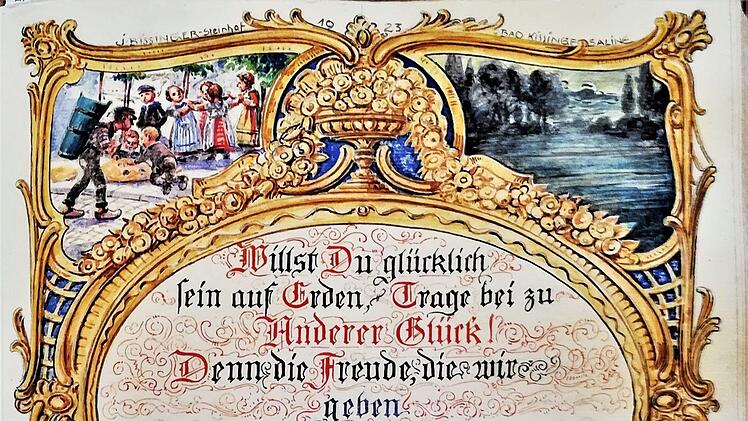 J. BISSINGER-Steinhof 1923 BAD KISSINGERSALINE
Willst Du glücklich
sein auf Erden, Trage bei zu
Anderer Glück!
Denn, die Freude, die wir
geben